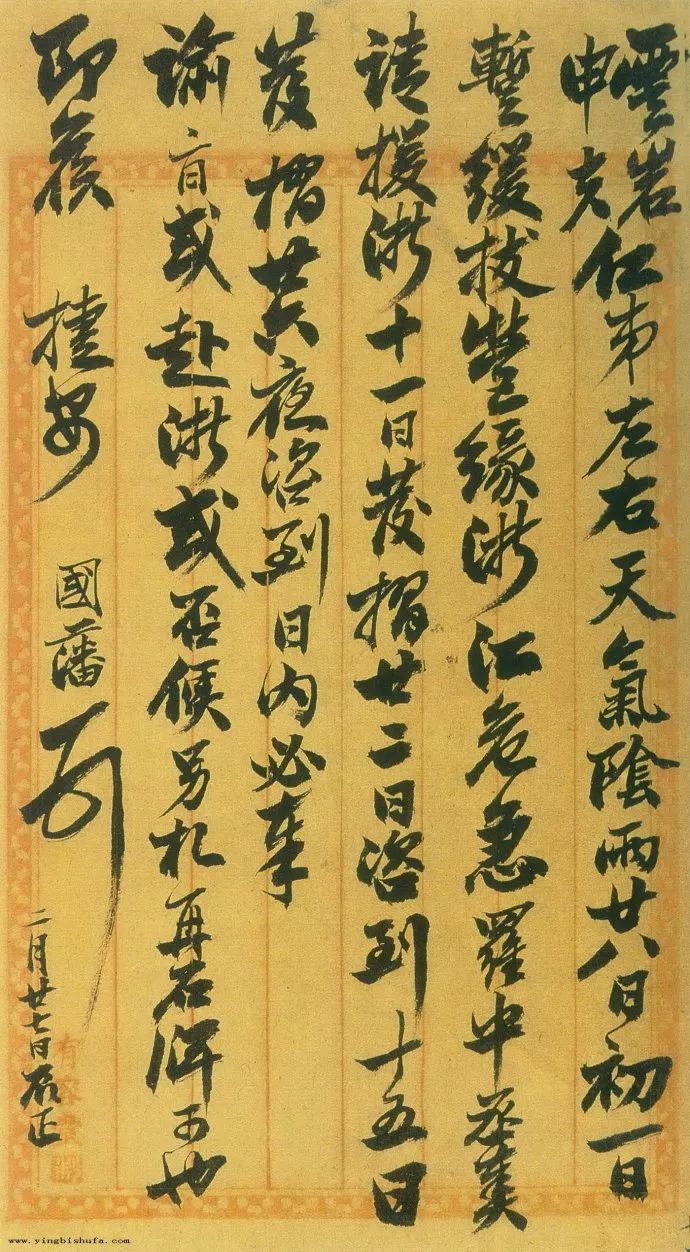 雲岩
申夫仁弟左右天氣陰雨廿八日初一日
暫緩拔營緣浙江危急羅中丞奏
請援浙十一日發摺廿二日咨到十五日
發摺廿六夜咨到日內必奉
諭旨或赴浙或否候另札再行可也
即候
捷安 國藩
二月廿七日辰正
www.yingbishufa.com